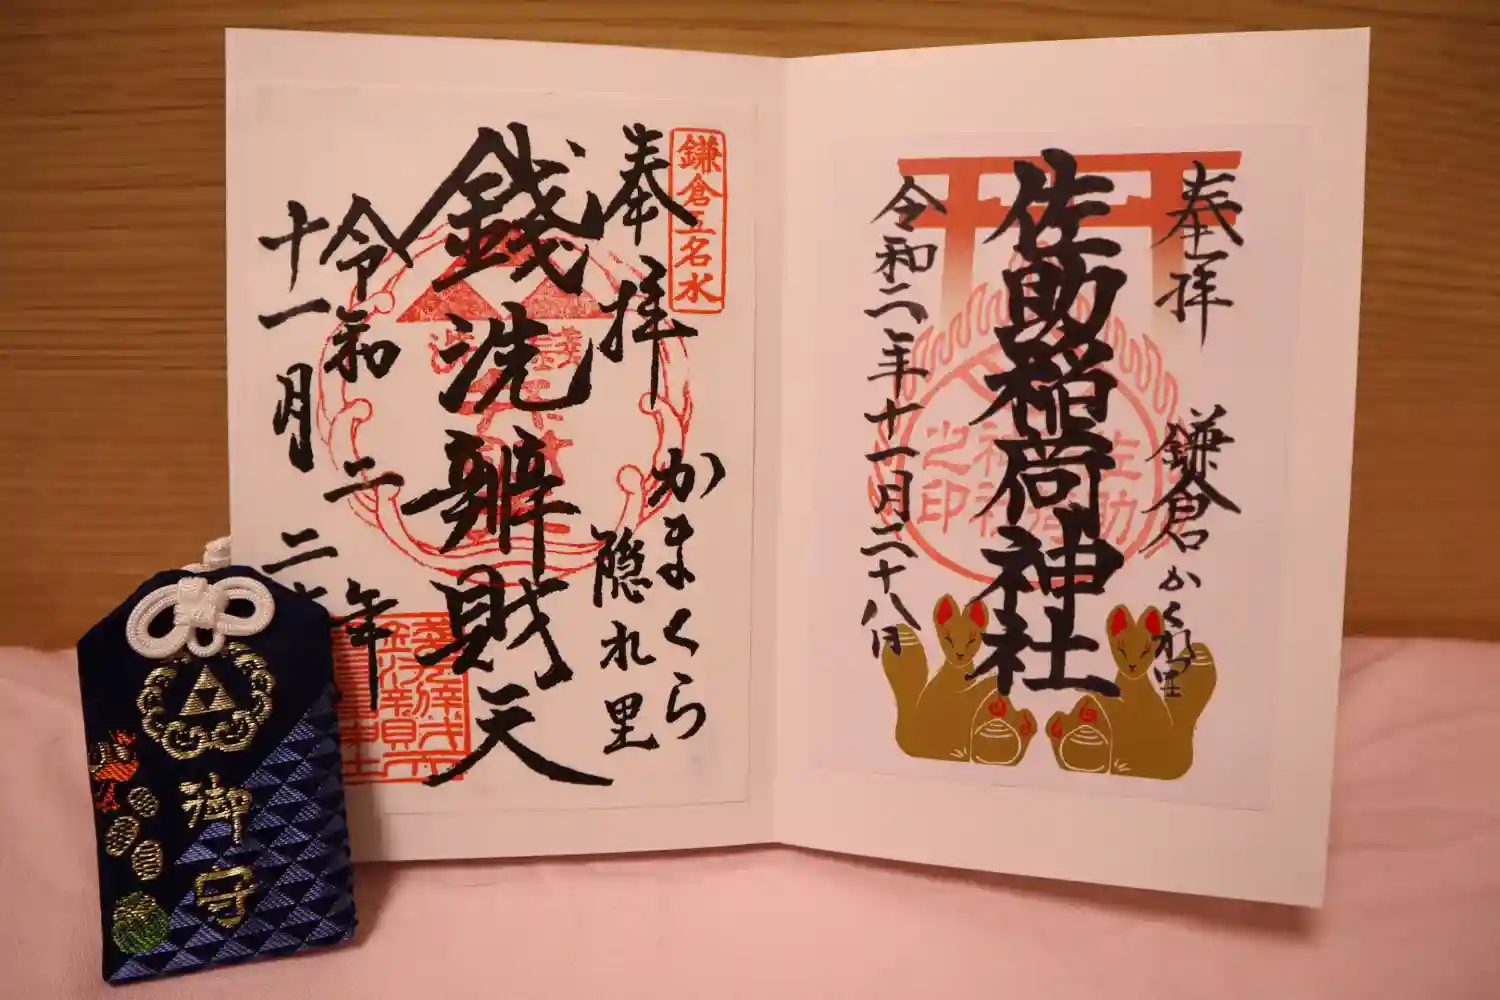 奉拝
鎌倉かくれ里
佐助稲荷神社
令和二年十一月二十八日
佐助
稲荷
神社
之印
鎌倉五名水
奉拝
かまくら
隠れ里
銭洗辨財天
令和二年
十一月二十
御守